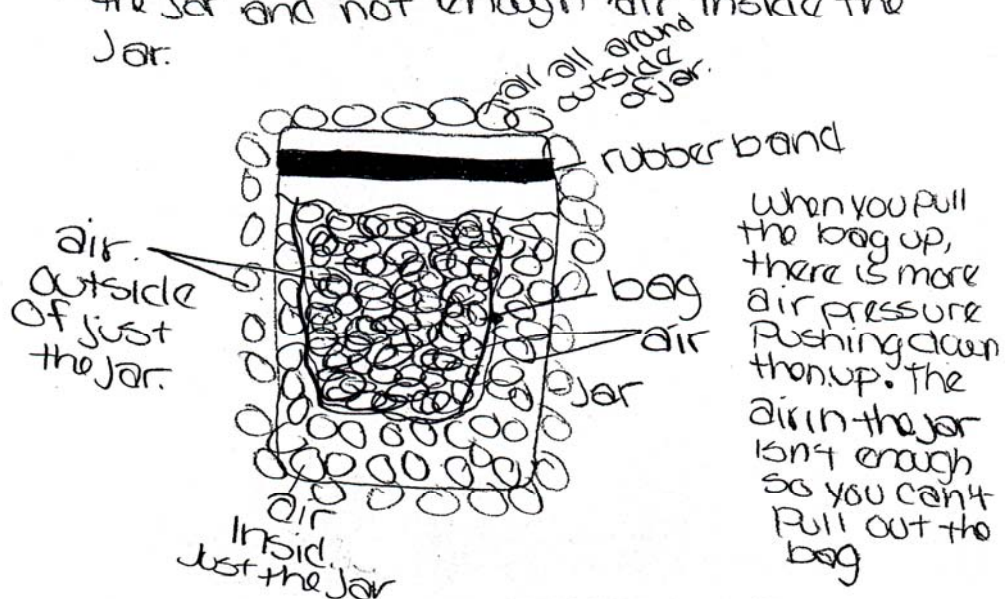 the jar and not enough air inside the
Jar.
air all around
outside
of jar.
rubber band
air.
outside
Of just
the jar.
bag
air
Jar
air
Insid
Just the Jar
when you pull
the bag up,
there is more
air pressure
Pushing down
then up. The
air in the jar
isn't enough
so you can't
Pull out the
bag